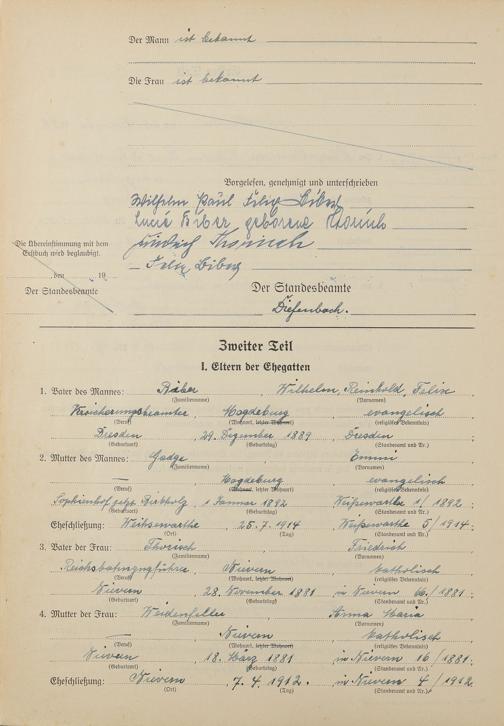 Der Mann ist bekannt
Die Frau ist bekannt
Vorgelesen, genehmigt und unterschrieben
Wilhelm Paul Felix
Lucie geborene
Die Übereinstimmung mit dem
Erstbuch wird beglaubigt.
Friedrich
Felix
den 19
Der Standesbeamte
Der Standesbeamte
Diefenbach.
Zweiter Teil
I. Eltern der Ehegatten
1. Vater des Mannes: Wilhelm, Reinhold, Felix
(Familienname) (Vornamen)
Versicherungsbeamter Magdeburg evangelisch
(Beruf) (Wohnort, letzter Wohnort) (religiöses Bekenntnis)
Dresden 29. Dezember 1889 Dresden
(Geburtsort) (Geburtstag) (Standesamt und Nr.)
2. Mutter des Mannes: Emmi
(Familienname) (Vornamen)
— Magdeburg evangelisch
(Beruf) (Wohnort, letzter Wohnort) (religiöses Bekenntnis)
1 Januar 1892 Weißewarthe 1/1892
(Geburtsort) (Geburtstag) (Standesamt und Nr.)
Eheschließung: 25.7.1914 Weißewarthe 5/1914
(Ort) (Tag) (Standesamt und Nr.)
3. Vater der Frau: Friedrich
(Familienname) (Vornamen)
Nievern katholisch
(Beruf) (Wohnort, letzter Wohnort) (religiöses Bekenntnis)
Nievern 28. November 1881 in Nievern /1881
(Geburtsort) (Geburtstag) (Standesamt und Nr.)
4. Mutter der Frau: Weidenfeller Anna Maria
(Familienname) (Vornamen)
— Nievern katholisch
(Beruf) (Wohnort, letzter Wohnort) (religiöses Bekenntnis)
Nievern 18. März 1881 in Nievern 16/1881
(Geburtsort) (Geburtstag) (Standesamt und Nr.)
Eheschließung: Nievern 7.4.1912. in Nievern 4/1912
(Ort) (Tag) (Standesamt und Nr.)